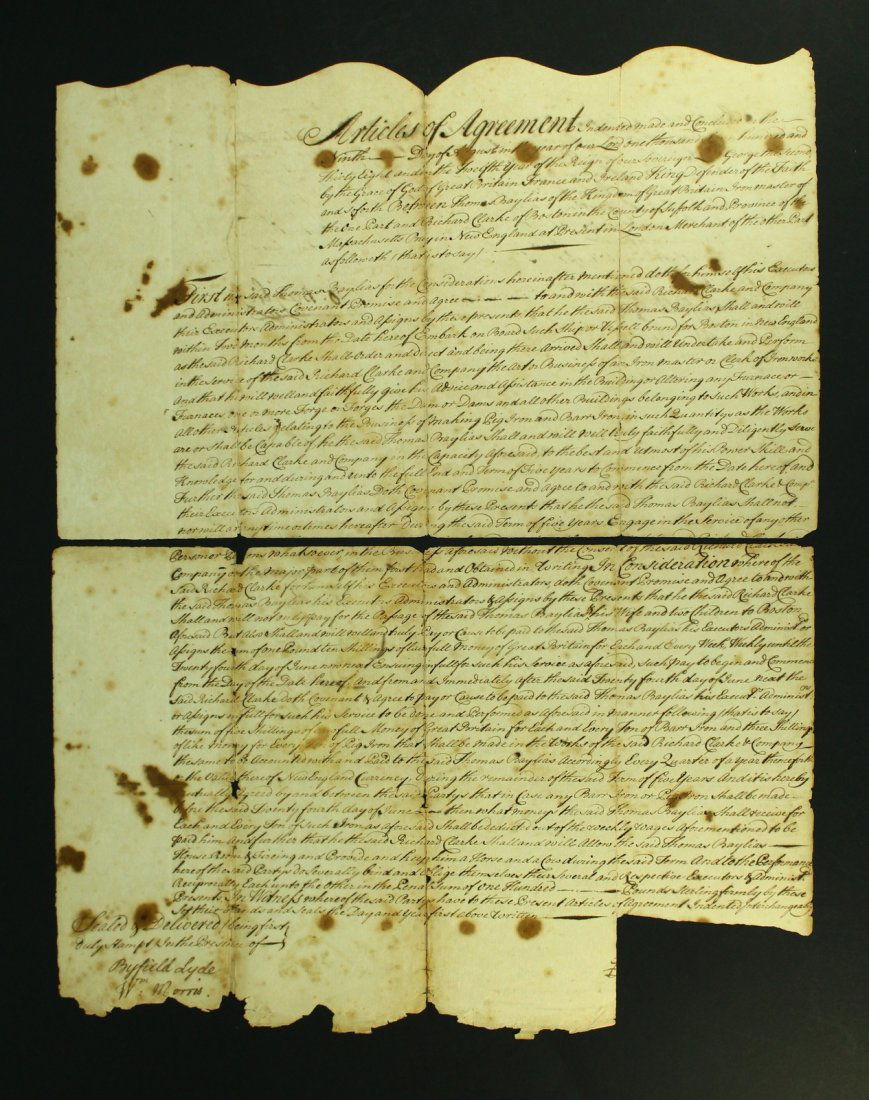 Articles of Agreement Indented made and Concluded the
Ninth Day of August in the year of our Lord one thousand hundred and
thirty eight and in the twelfth Year of the Reign of our Sovereign George the second
by the Grace of God of Great Britain France and Ireland King Defender of the Faith
and so forth Between Thomas Baylias of the Kingdom of Great Britain Iron master of
the one Part and Richard Clarke of Boston in the County of Suffolk and Province of the
Massachusetts Bay in New England at Present in London Merchant of the other Part
as followeth (that is to say)
First the said Thomas Baylias for the Considerations hereinafter mentioned doth for himself his Executors
and Administrators Covenant Promise and agree to and with the said Richard Clarke and Company
their Executors Administrators and Assigns by these presents that he the said Thomas Baylias Shall and will
within two months from the Date hereof Embark on Board Such Ship or Vessell bound for Boston in New England
as the said Richard Clarke Shall Order and direct and being there Arrived Shall and will Undertake and Perform
in the service of the said Richard Clarke and Company the Art or Business of an Iron master or Clerk of Ironworks
And that he will well and faithfully give his Advice and Assistance in the Building or Altering any Furnace or
Furnaces one or more Forge or Forges the Dam or Dams and all other Buildings belonging to Such Works, and in
all other Articles relating to the Business of making Pig Iron and Barr Iron in such Quantitys as the Works
are or shall be Capable of the the said Thomas Baylias Shall and will will truly faithfully and Diligently Serve
the said Richard Clarke and Company in the Capacity Aforesaid, to the best and utmost of his Power Skill and
Knowledge for and during and unto the full End and Term of Five Years to Commence from the Date hereof and
Further the said Thomas Baylias Doth Covenant Promise and Agree to and with the said Richard Clarke & Compy
their Executors Administrators and Assigns by these Present that he the said Thomas Baylias Shall not
nor will at any time or times hereafter During the said Term of five Years Engage in the Service of any other
Person or Persons whatsoever in the Business Aforesaid without the Consent of the said Richard Clarke and
Company or the major part of them first had and Obtained in Writing In Consideration whereof the
Said Richard Clarke for himself his Executors and Administrators doth Covenant Promise and Agree to and with
the said Thomas Baylias his Executors Administrators & Assigns by these Presents that he the said Richard Clarke
Shall and will not only pay for the Passage of the said Thomas Baylias his Wife and two Children to Boston
Afores'd But also Shall and will well and truly Pay or Cause to be paid to the said Thomas Baylias his Executors Administrs or
Assigns the sum of One Pound ten Shillings of lawfull Money of Great Britain for Each and Every Week, Weekly until the
Twenty fourth day of June now next Ensuing in full for such his Service as aforesaid, such pay to begin and Commence
from the Day of the Date hereof, And from and Immediately after the said Twenty fourth day of June next the
Said Richard Clarke doth Covenant & Agree to pay or Cause to be paid to the said Thomas Baylias his Execut.rs Administ.rs
or Assigns in full for such his Service to be done and Performed as Aforesaid in manner following (that is to say)
the sum of five Shillings of lawfull Money of Great Britain for Each and Every Ton of Barr Iron and three Shillings
of like money for Every of Pig Iron that Shall be made in the Works of the Said Richard Clarke & Company
the same to be Accounted with and paid to the Said Thomas Baylias Accordingly Every Quarter of a Year thenceforth
in the Value thereof New England Currency, During the remainder of the said Term of five Years And it is hereby
mutually Agreed by and between the said Partys that in Case any Barr Iron or Pig Iron Shall be made
before the said Twenty fourth day of June then what moneys the said Thomas Baylias Shall receive for
Each and Every Ton of Such Iron as Aforesaid Shall be deducted out of the Weekly Wages Aforementioned to be
paid him And further that he the said Richard Clarke Shall and will Allow the said Thomas Baylias
House Room & Fireing and Provide and keep him a Horse and a Cow during the said Term And to the Performance
hereof the said Partys Do severally bind and oblige themselves their several and Respective Executors & Administ.rs
Reciprocally Each unto the other in the Penal Sum of One Hundred Pounds Sterling firmly by these
Presents In Witness whereof the said Partys have to these Present Articles of Agreement Indented Interchangeably
Set their Hands and Seals the Day and Year first above Written
Sealed & Delivered (being first
duly Stampt) In the Presence of
Byfield Lyde
Wm Morris